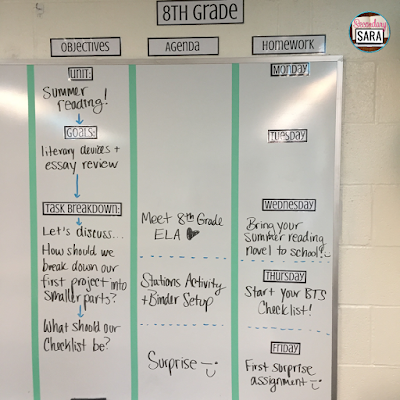 8TH GRADE
Secondary
SARA
OBJECTIVES
AGENDA
HOMEWORK
UNIT:
Summer
reading!
GOALS:
literary devices +
essay review
TASK BREAKDOWN:
Let's discuss...
How should we
break down our
first project into
smaller parts?
What should our
Checklist be?
Meet 8th Grade
ELA
Stations Activity
+ Binder Setup
Surprise
MONDAY
TUESDAY
WEDNESDAY
Bring your
summer reading
novel to school!
THURSDAY
Start your BTS
Checklist!
FRIDAY
First surprise
assignment